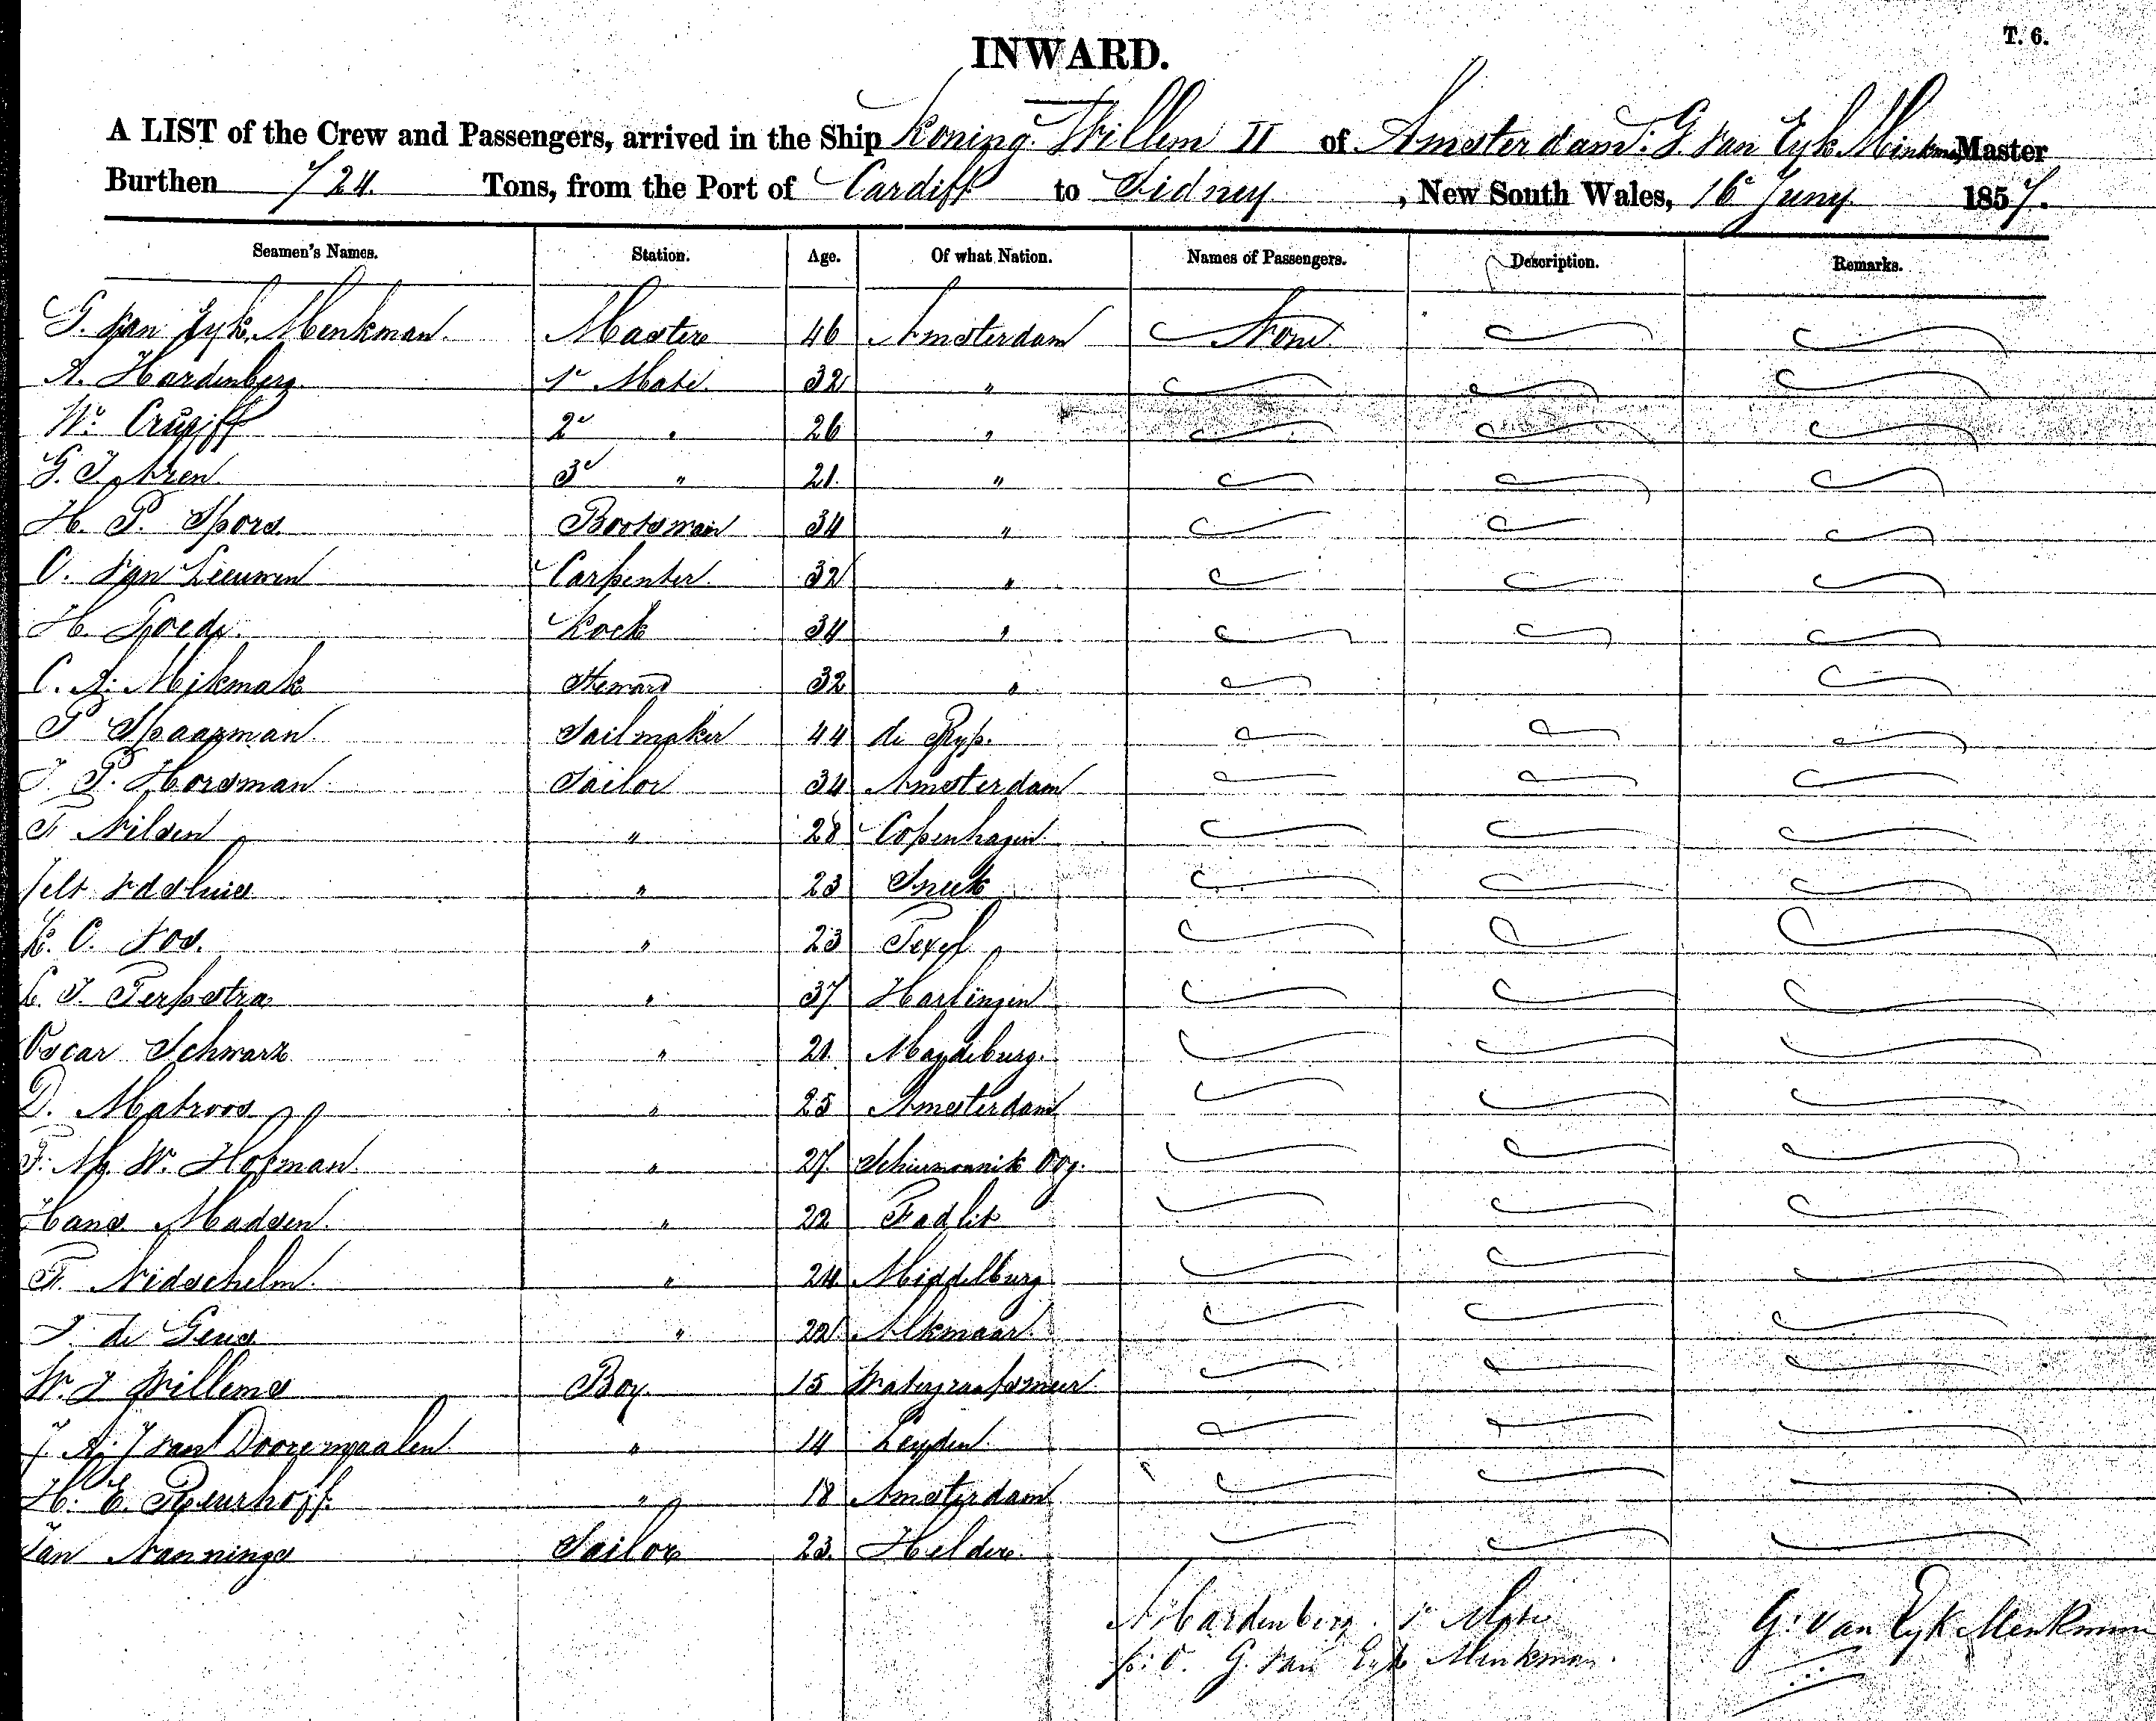 INWARD.
T. 6.
A LIST of the Crew and Passengers, arrived in the Ship Koning Willem II of Amsterdam. G. van Eyk Menkman Master
Burthen 724 Tons, from the Port of Cardiff to Sidney, New South Wales, 16e Juny 1857.
Seamen's Names. Station. Age. Of what Nation. Names of Passengers. Description. Remarks.
G. van Eyk Menkman. Master 46 Amsterdam None
A. Hardenberg 1e Mate 32 "
Wm. 2e " 26 "
G. J. 3e " 21 "
H. P. Spors Bootsman 34 "
C. van Leeuwen Carpenter 32 "
H. Goede Kock 34 "
C. A. Mikmak Steward 32 "
P Spaarman Sailmaker 44 de Ryp.
J. P. Horsman Sailor 34 Amsterdam
F. Nilsen " 28 Copenhagen
" 23 Sneek
K. C. Vos. " 23 Texel
J. Terpstra " 37 Harlingen
Oscar Schwarz " 21 Magdeburg
D. Matroos " 25 Amsterdam
F. M. W. Hofman " 27 Schiermonnik Oog.
Hans Madsen " 22
F. Nidschelm " 24 Middelburg
J. de Geus " 22 Alkmaar
W. J Willems Boy 15 Watergraafsmeer
J. A. J van Doorenmaalen " 14 Leyden
H. E. Reurhoff " 18 Amsterdam
Jan Nannings Sailor 23 Helder
A Hardenberg. 1e Mate G. van Eyk Menkman
G. van Eyk Menkman.